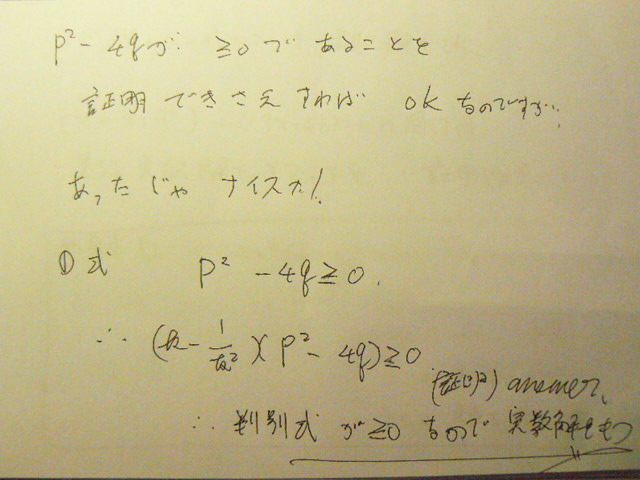 p² - 4qが ≥0で あることを
証明 できさえすれば OKなのですが、
あったじゃ ナイスカ!
① 式 p² - 4q ≥ 0.
∴ (k - 1/k²)(p² - 4q) ≥ 0
(証明2) answer、
∴ 判別式 が ≥0 なので 実数解をもつ